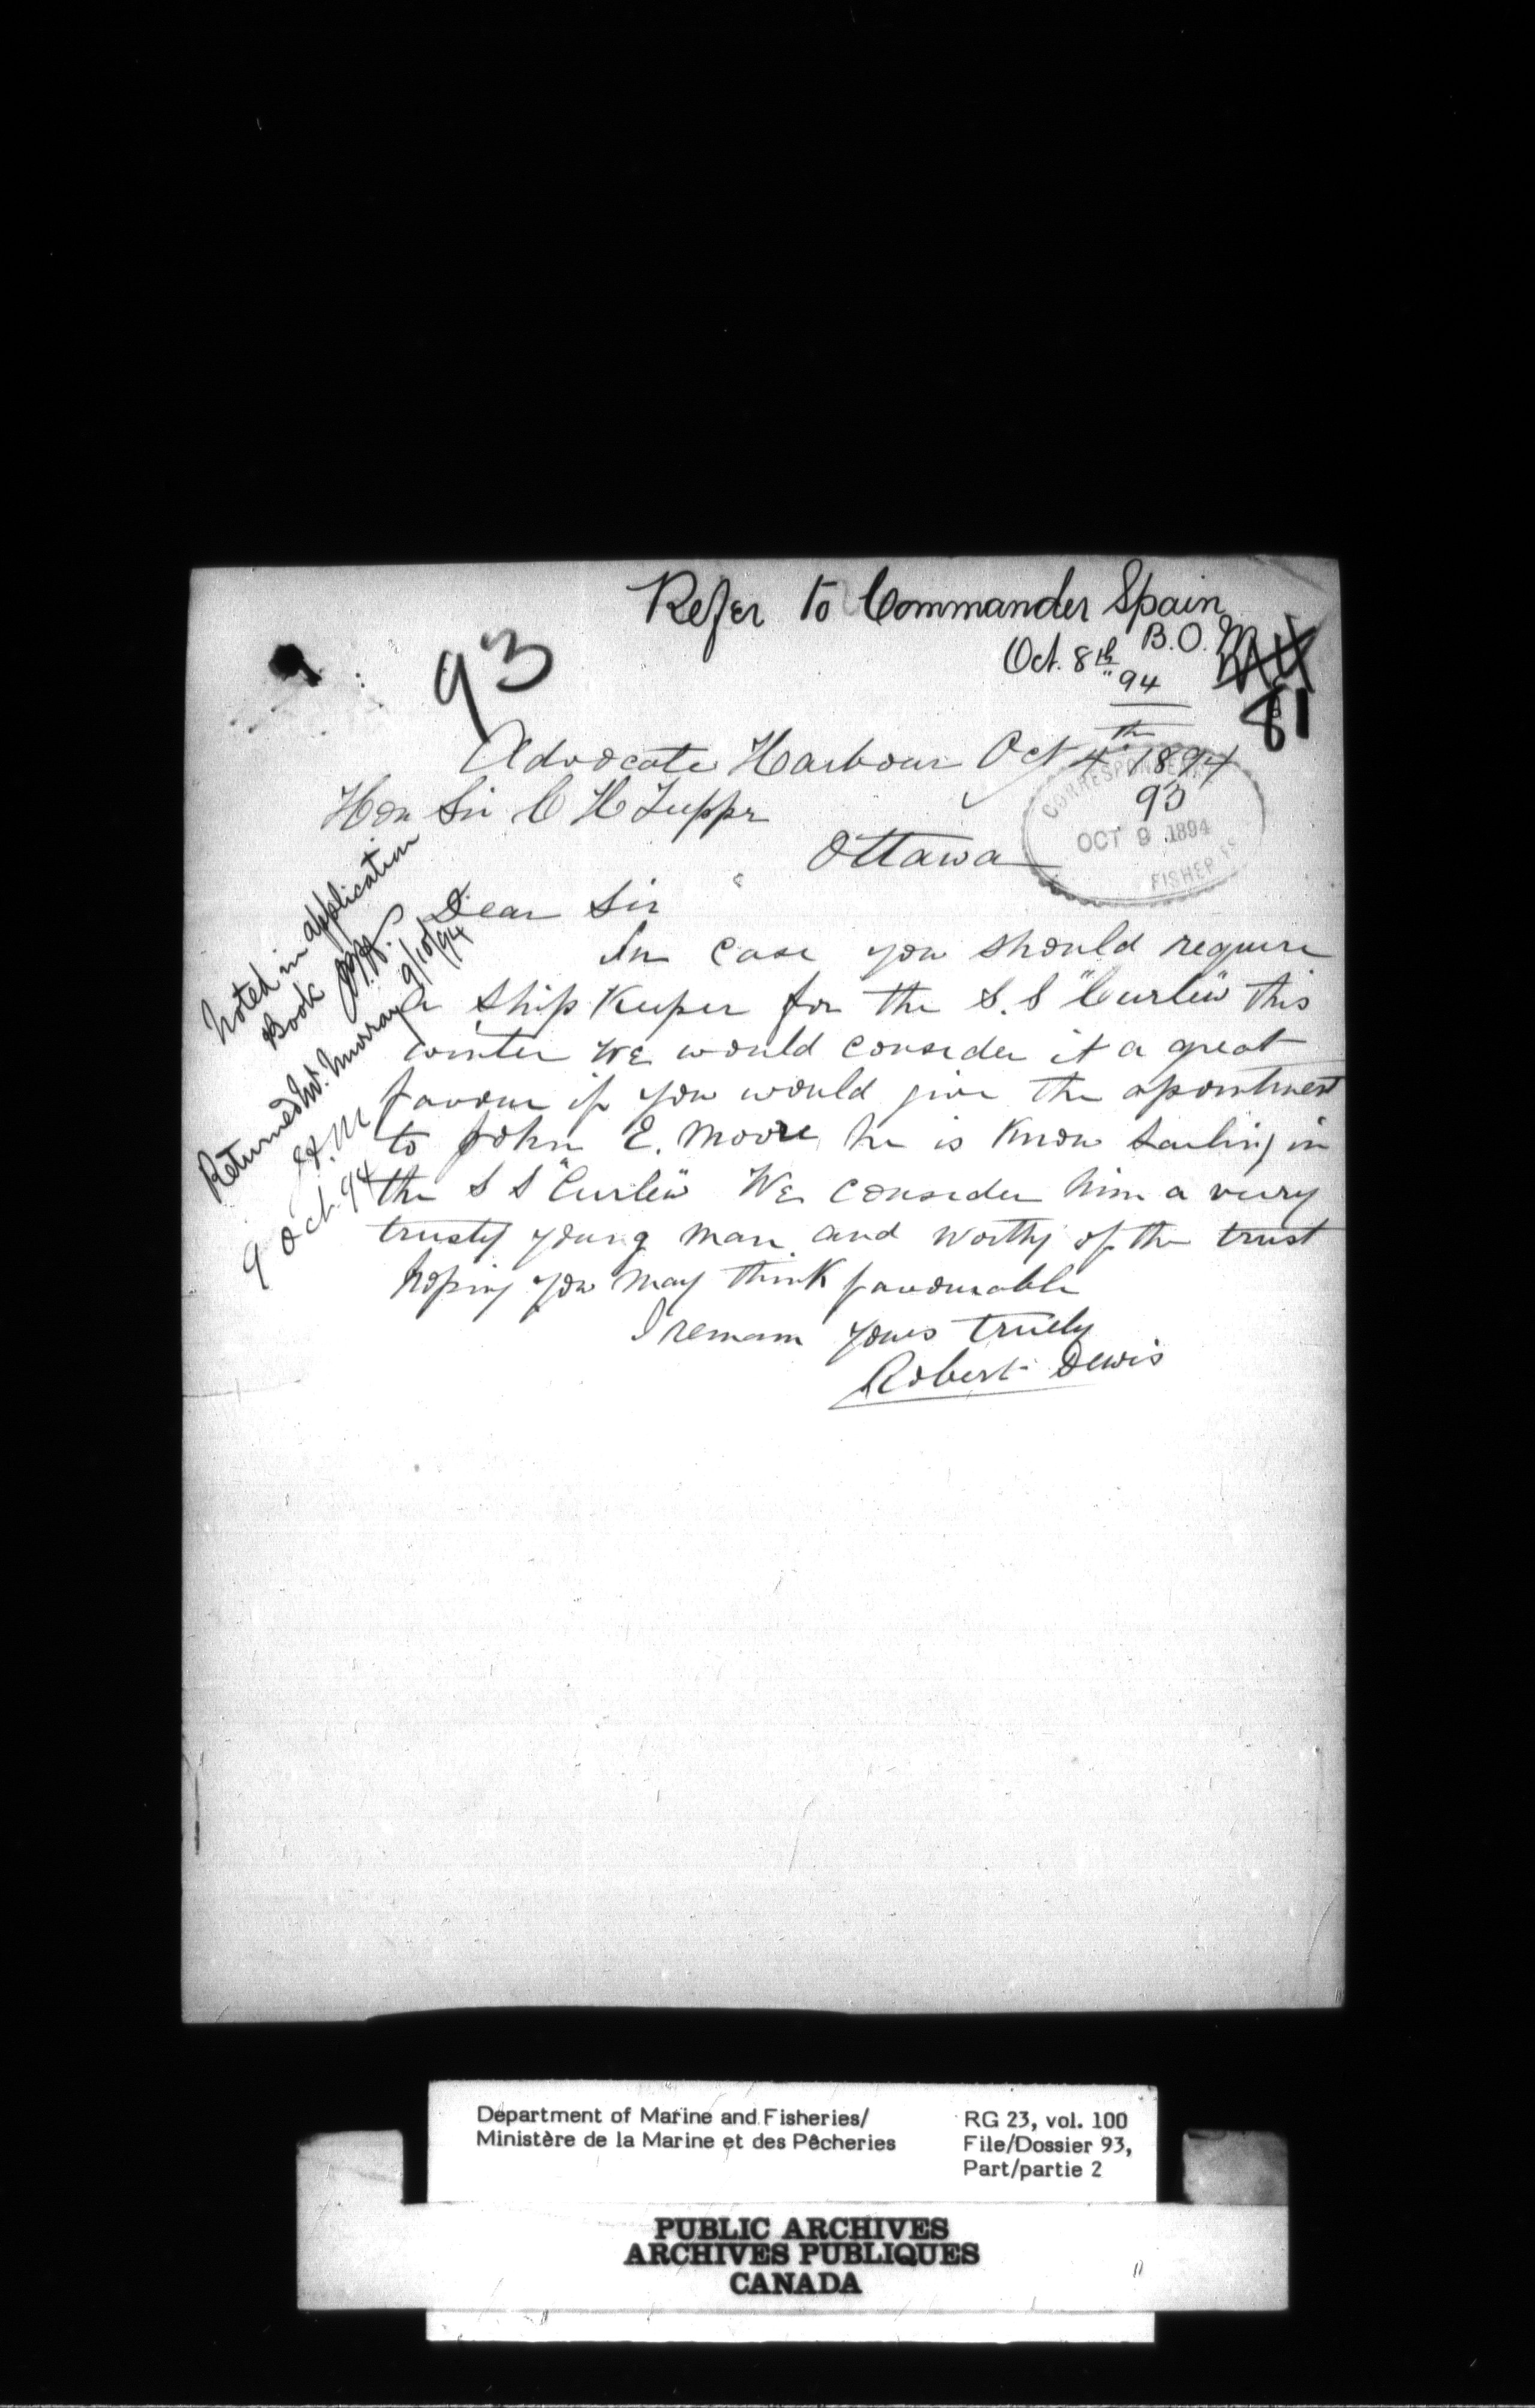 Refer to Commander Spain
B.O.
Oct. 8th 94
93
81
Advocate Harbour Oct 4th 1894
Hon Sir C H Tuppr
93
CORRESPONDENCE
OCT 9 1894
FISHERIES
Ottawa
Dear Sir
In case you should require
a Ship Keeper for the S.S "Curlew" this
winter we would consider it a great
favour if you would give the apointment
to John E. Moore he is Know Sailing in
the S S "Curlew" We consider him a veery
trusty young man and worthy of the trust
hoping you may think favourable
I remain yours truely
Robert Dewis
Noted in application
Book
9/10/94
Returned Mr. Murray
9 Oct. 94
Department of Marine and Fisheries/
Ministère de la Marine et des Pêcheries
RG 23, vol. 100
File/Dossier 93,
Part/partie 2
PUBLIC ARCHIVES
ARCHIVES PUBLIQUES
CANADA